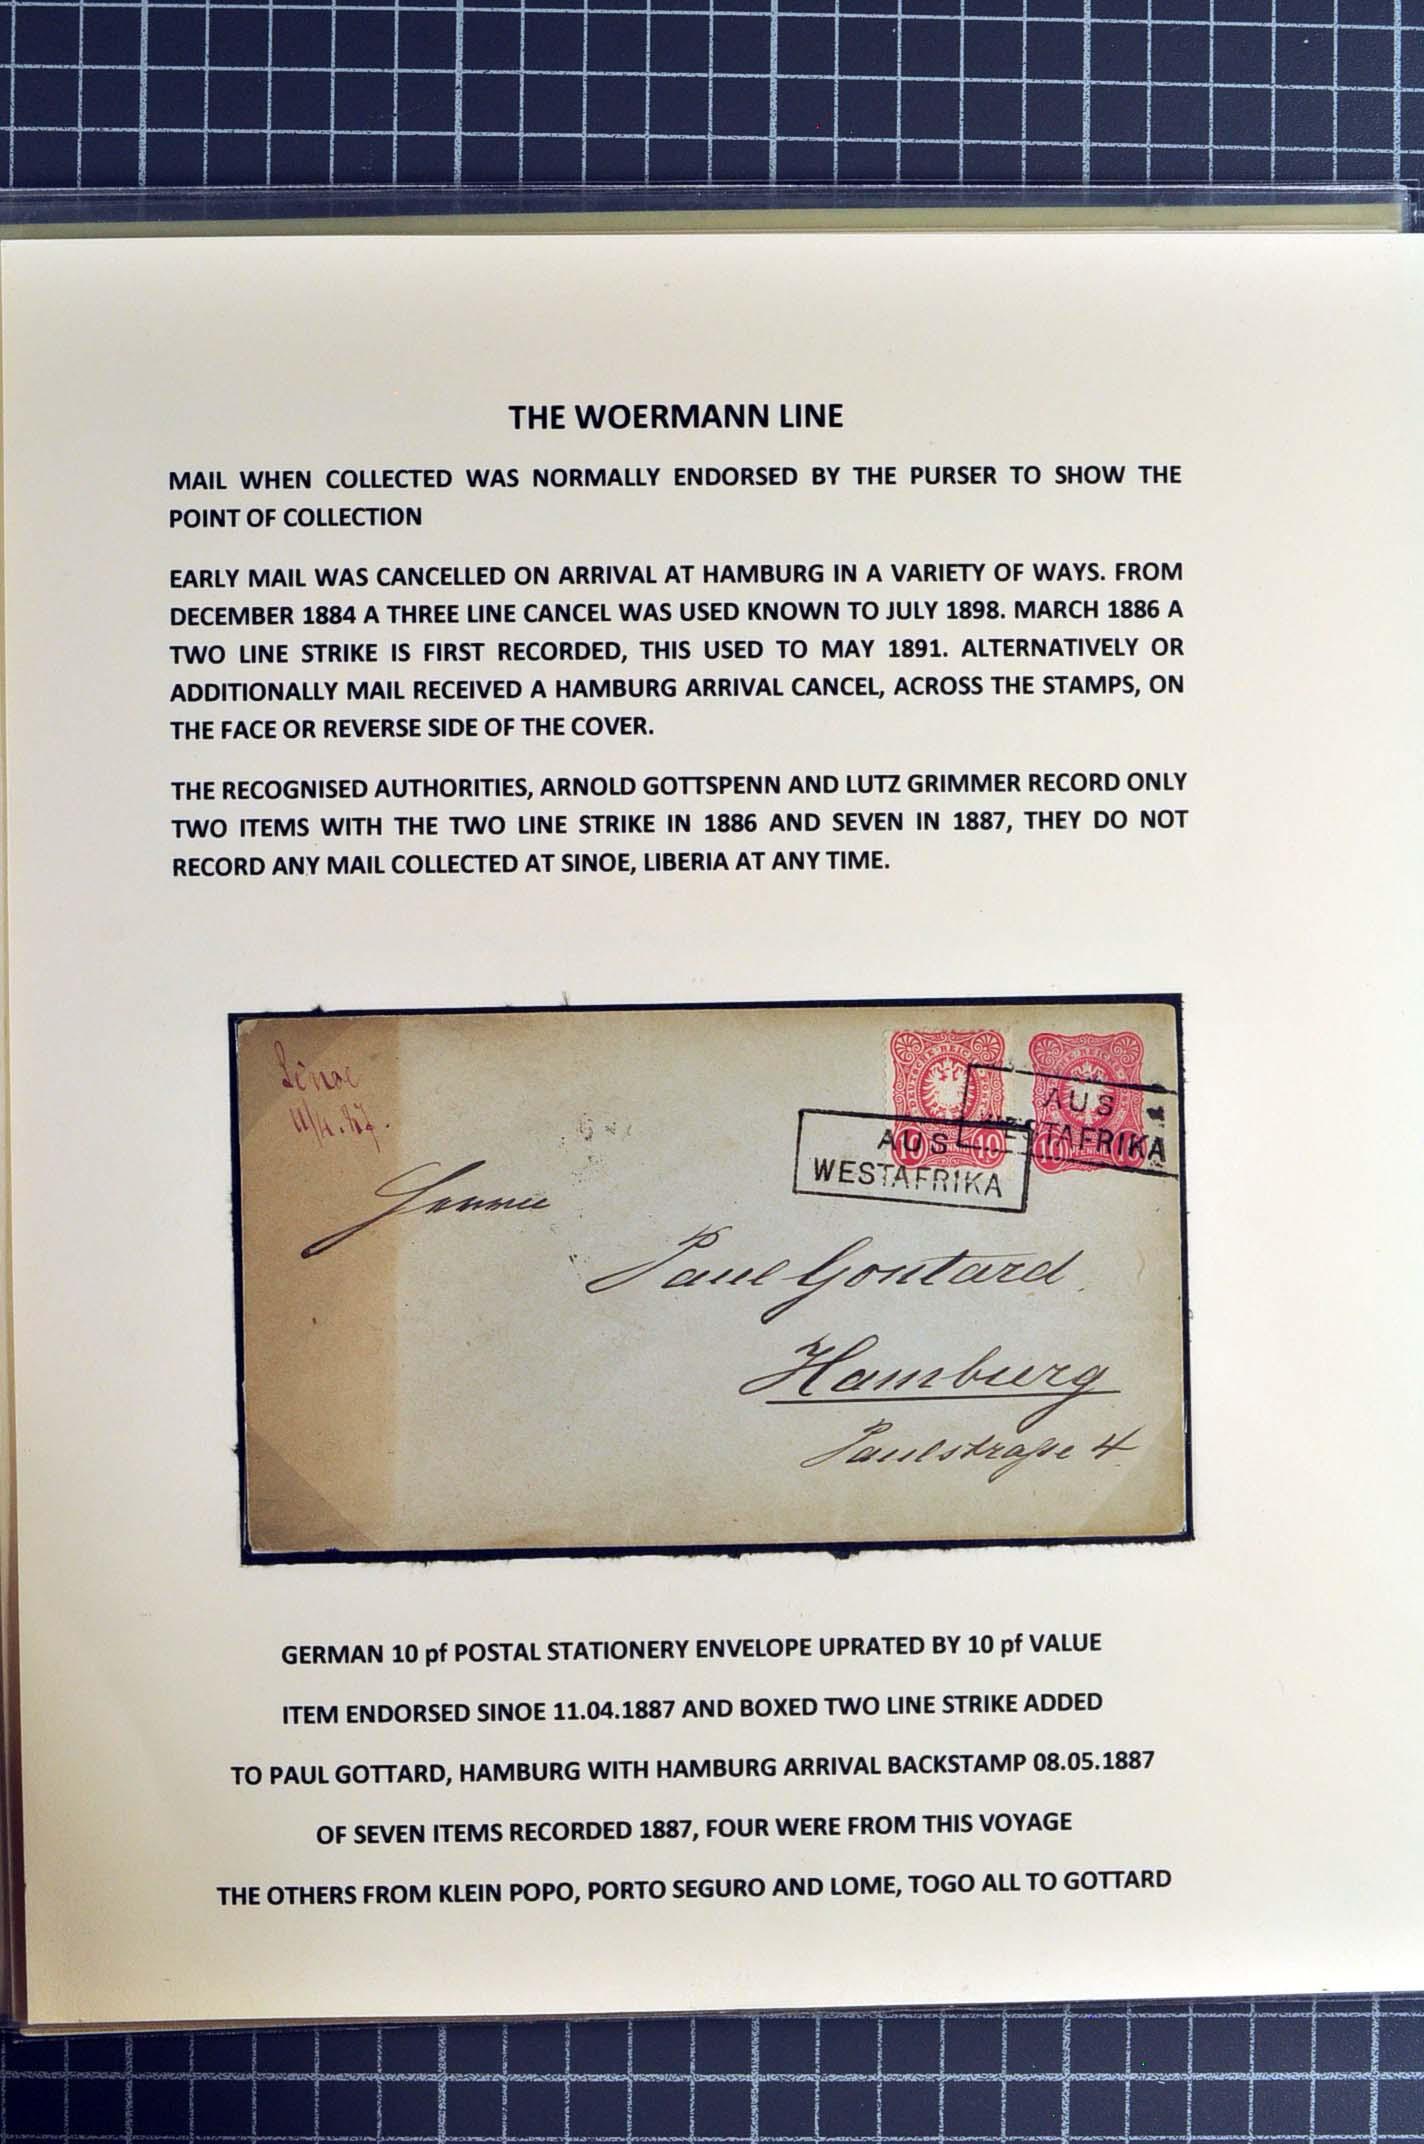 THE WOERMANN LINE
MAIL WHEN COLLECTED WAS NORMALLY ENDORSED BY THE PURSER TO SHOW THE
POINT OF COLLECTION
EARLY MAIL WAS CANCELLED ON ARRIVAL AT HAMBURG IN A VARIETY OF WAYS. FROM
DECEMBER 1884 A THREE LINE CANCEL WAS USED KNOWN TO JULY 1898. MARCH 1886 A
TWO LINE STRIKE IS FIRST RECORDED, THIS USED TO MAY 1891. ALTERNATIVELY OR
ADDITIONALLY MAIL RECEIVED A HAMBURG ARRIVAL CANCEL, ACROSS THE STAMPS, ON
THE FACE OR REVERSE SIDE OF THE COVER.
THE RECOGNISED AUTHORITIES, ARNOLD GOTTSPENN AND LUTZ GRIMMER RECORD ONLY
TWO ITEMS WITH THE TWO LINE STRIKE IN 1886 AND SEVEN IN 1887, THEY DO NOT
RECORD ANY MAIL COLLECTED AT SINOE, LIBERIA AT ANY TIME.
Sinoe
11/4.87.
10 PFENNIG 10
10 PFENNIG 10
AUS
WESTAFRIKA
AUS
WESTAFRIKA
Herrn
Paul Gontard
Hamburg
Paulstraße 4
GERMAN 10 pf POSTAL STATIONERY ENVELOPE UPRATED BY 10 pf VALUE
ITEM ENDORSED SINOE 11.04.1887 AND BOXED TWO LINE STRIKE ADDED
TO PAUL GOTTARD, HAMBURG WITH HAMBURG ARRIVAL BACKSTAMP 08.05.1887
OF SEVEN ITEMS RECORDED 1887, FOUR WERE FROM THIS VOYAGE
THE OTHERS FROM KLEIN POPO, PORTO SEGURO AND LOME, TOGO ALL TO GOTTARD